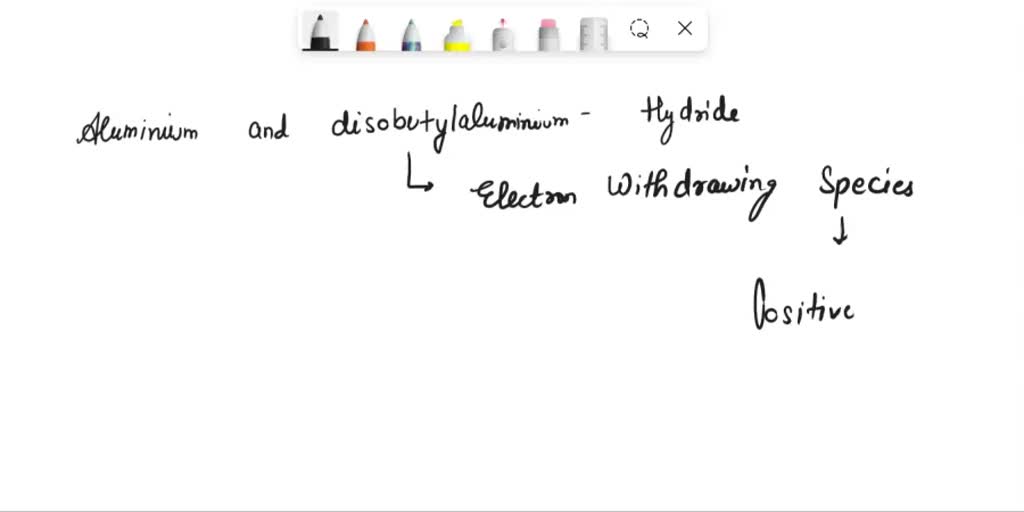 Aluminium and disobutylaluminium - Hydride
Electron Withdrawing Species
Positive